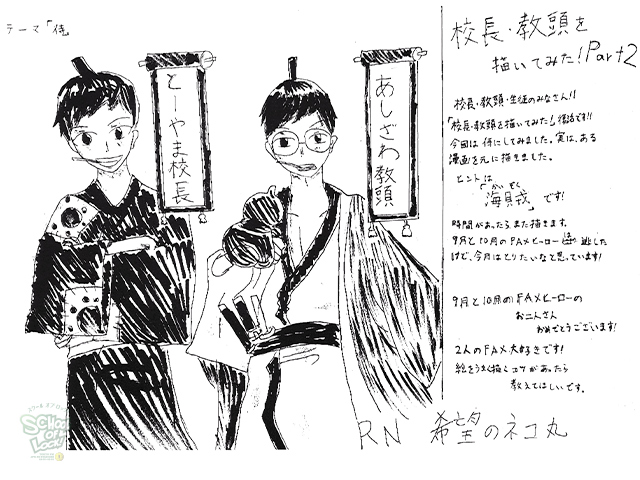 テーマ「侍」
とーやま校長
あしざわ教頭
校長・教頭を
描いてみた!Part2
校長・教頭・生徒のみなさん!!
「校長・教頭を描いてみた!」復活です!!
今回は侍にしてみました。実は、ある
漫画を元に描きました。
ヒントは
「海賊戒」です!
時間があったらまた描きます。
9月と10月のFAXヒーロー逃した
けど、今月はとりたいなと思っています!
9月と10月のFAXヒーローの
お二人さん
おめでとうございます!
2人のFAX大好きです!
絵をうまく描くコツがあったら
教えてほしいです。
RN 希望のネコ丸
SCHOOL OF LOCK!